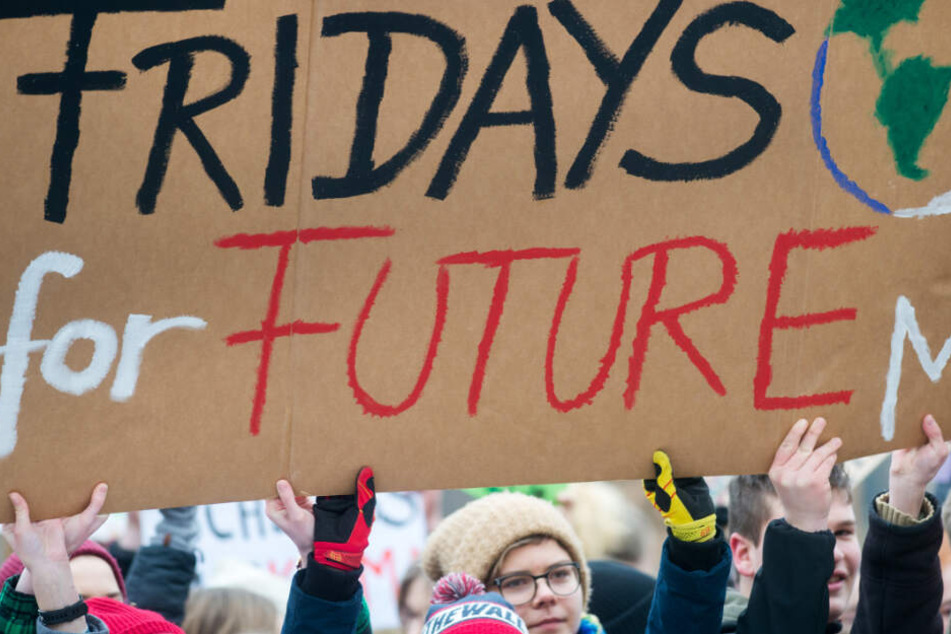 FRIDAYS
for FUTURE M
THE WALL